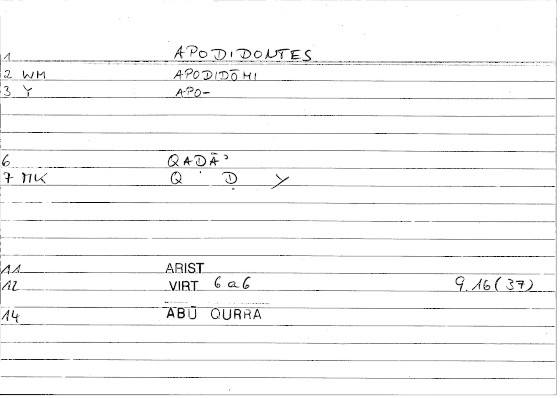 1 APODIDONTES
2 WM APODIDŌMI
3 Y APO-
6 QADĀʾ
7 MK Q Ḍ Y
11 ARIST
12 VIRT 6a6 9.16(37)
14 ABŪ QURRA